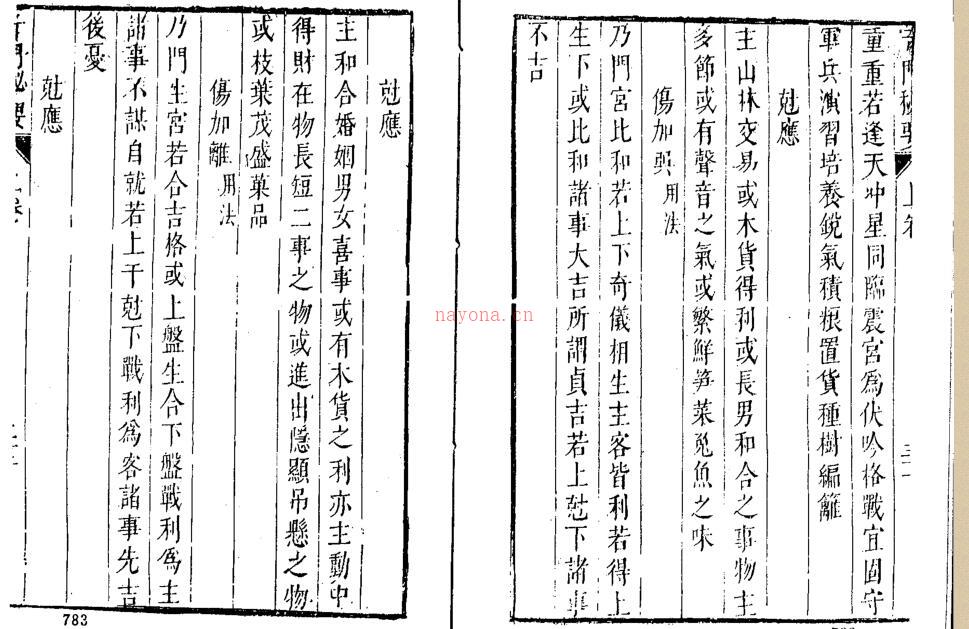 重重若逢天冲星同臨震宮爲伏吟格戰宜固守
軍兵演習培養銳氣積粮置貨種樹編籬
尅應
主山林交易或木貨得利或長男和合之事物主
多節或有聲音之氣或繁鮮笋菜兎魚之味
傷加巽用法
乃門宮比和若上下奇儀相生主客皆利若得上
生下或比和諸事大吉所謂貞吉若上尅下諸事
不吉
尅應
主和合婚姻男女喜事或有木貨之利亦主動中
得財在物長短二事之物或進出隱顯吊懸之物
或枝葉茂盛菓品
傷加離用法
乃門生宮若合吉格或上盤生合下盤戰利爲主
諸事不謀自就若上干尅下戰利為客諸事先吉
後憂
尅應
783
nayona.cn